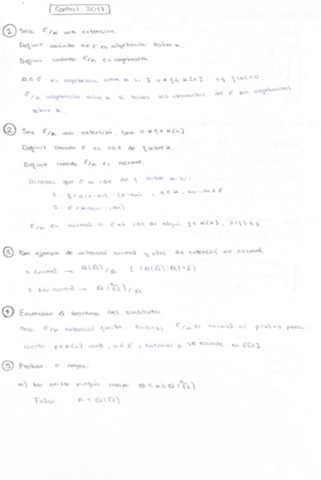 Control 2017
① Sea E/K una extensión.
Definir cuándo α∈E es algebraico sobre K.
Definir cuándo E/K es algebraica.
α∈E es algebraico sobre K si ∃ 0≠f∈K[x] tq f(α)=0.
E/K algebraica sobre K si todos los elementos de E son algebraicos
sobre K.
② Sea E/K una extensión, sea 0≠f∈K[x]
Definir cuándo E es cde de f sobre K.
Definir cuándo E/K es normal.
Diremos que E es cde de f sobre K si:
E/K es normal si E es cde de algún f∈K[x]
③ Dar ejemplo de extensión normal y otro de extensión no normal.
1. Normal → Q(√2)/Q ( |Q(√2):Q|=2)
2. No normal → /Q
④ Enunciar el teorema del
Sea E/K extensión finita. Entonces E/K es normal sii para
cierto p∈K[x] irred, α∈E, entonces p se escinde en E[x].
⑤ Probar o negar:
a) No existe ningún cuerpo
Falso K = Q(√2)